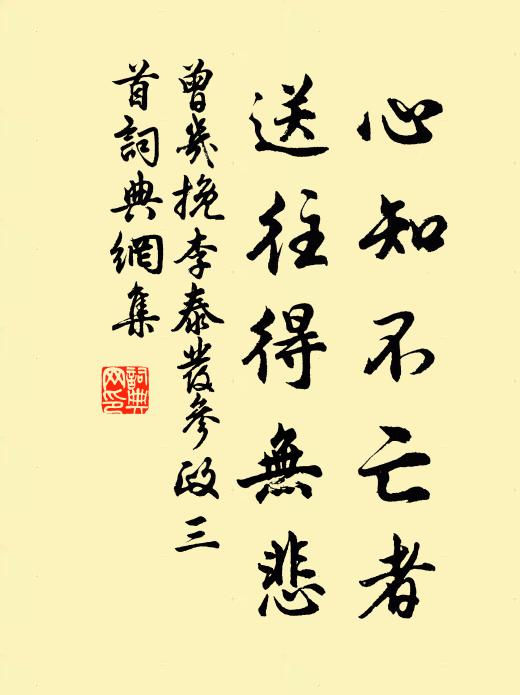 心知不亡者
送往得無悲
曾幾挽李泰發參政三
首詞典網集
詞典
网印